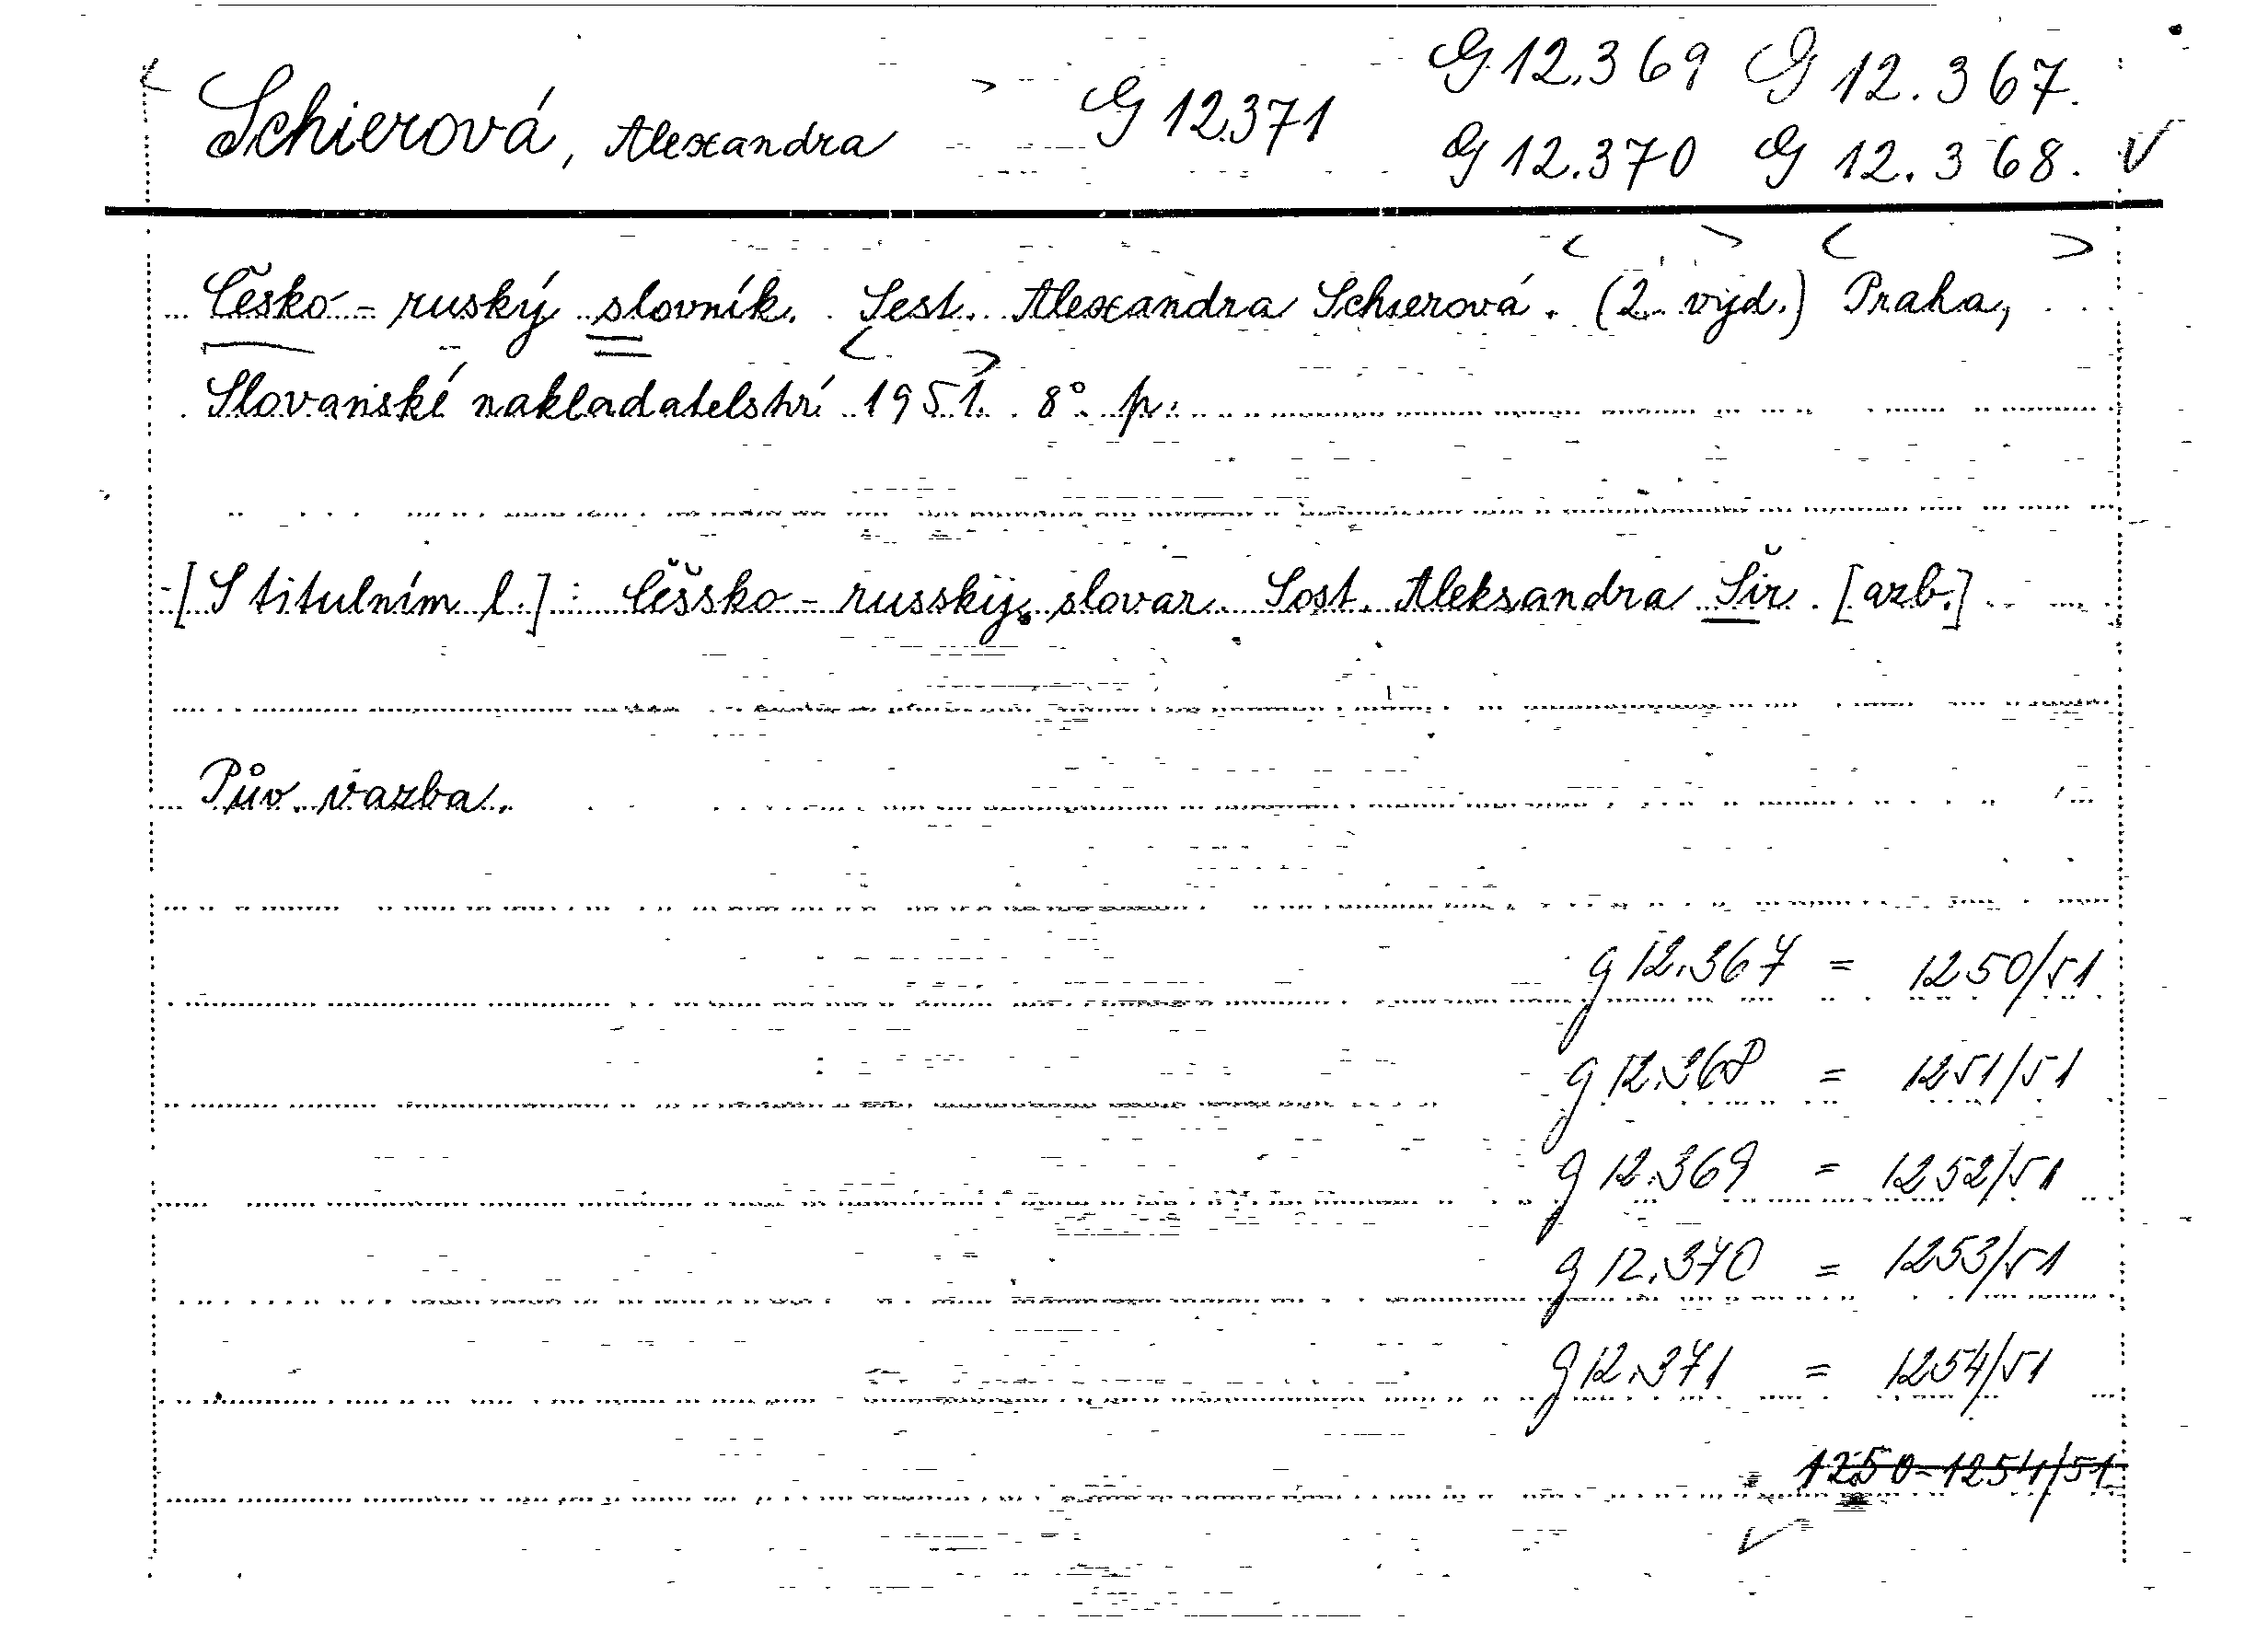 G 12.369 G 12.367.
Schierová, Alexandra G 12.371
G 12.370 G 12.368. √
Česko-ruský slovník. Sest. Alexandra Schierová. (2. vyd.) Praha,
Slovanské nakladatelství 1951. 8° p.
-[S titulním l.]: Češsko-russkij slovar. Sost. Aleksandra Šir. [azb.]
Pův. vazba.
g 12.367 = 1250/51
g 12.368 = 1251/51
g 12.369 = 1252/51
g 12.370 = 1253/51
g 12.371 = 1254/51
1250-1254/51